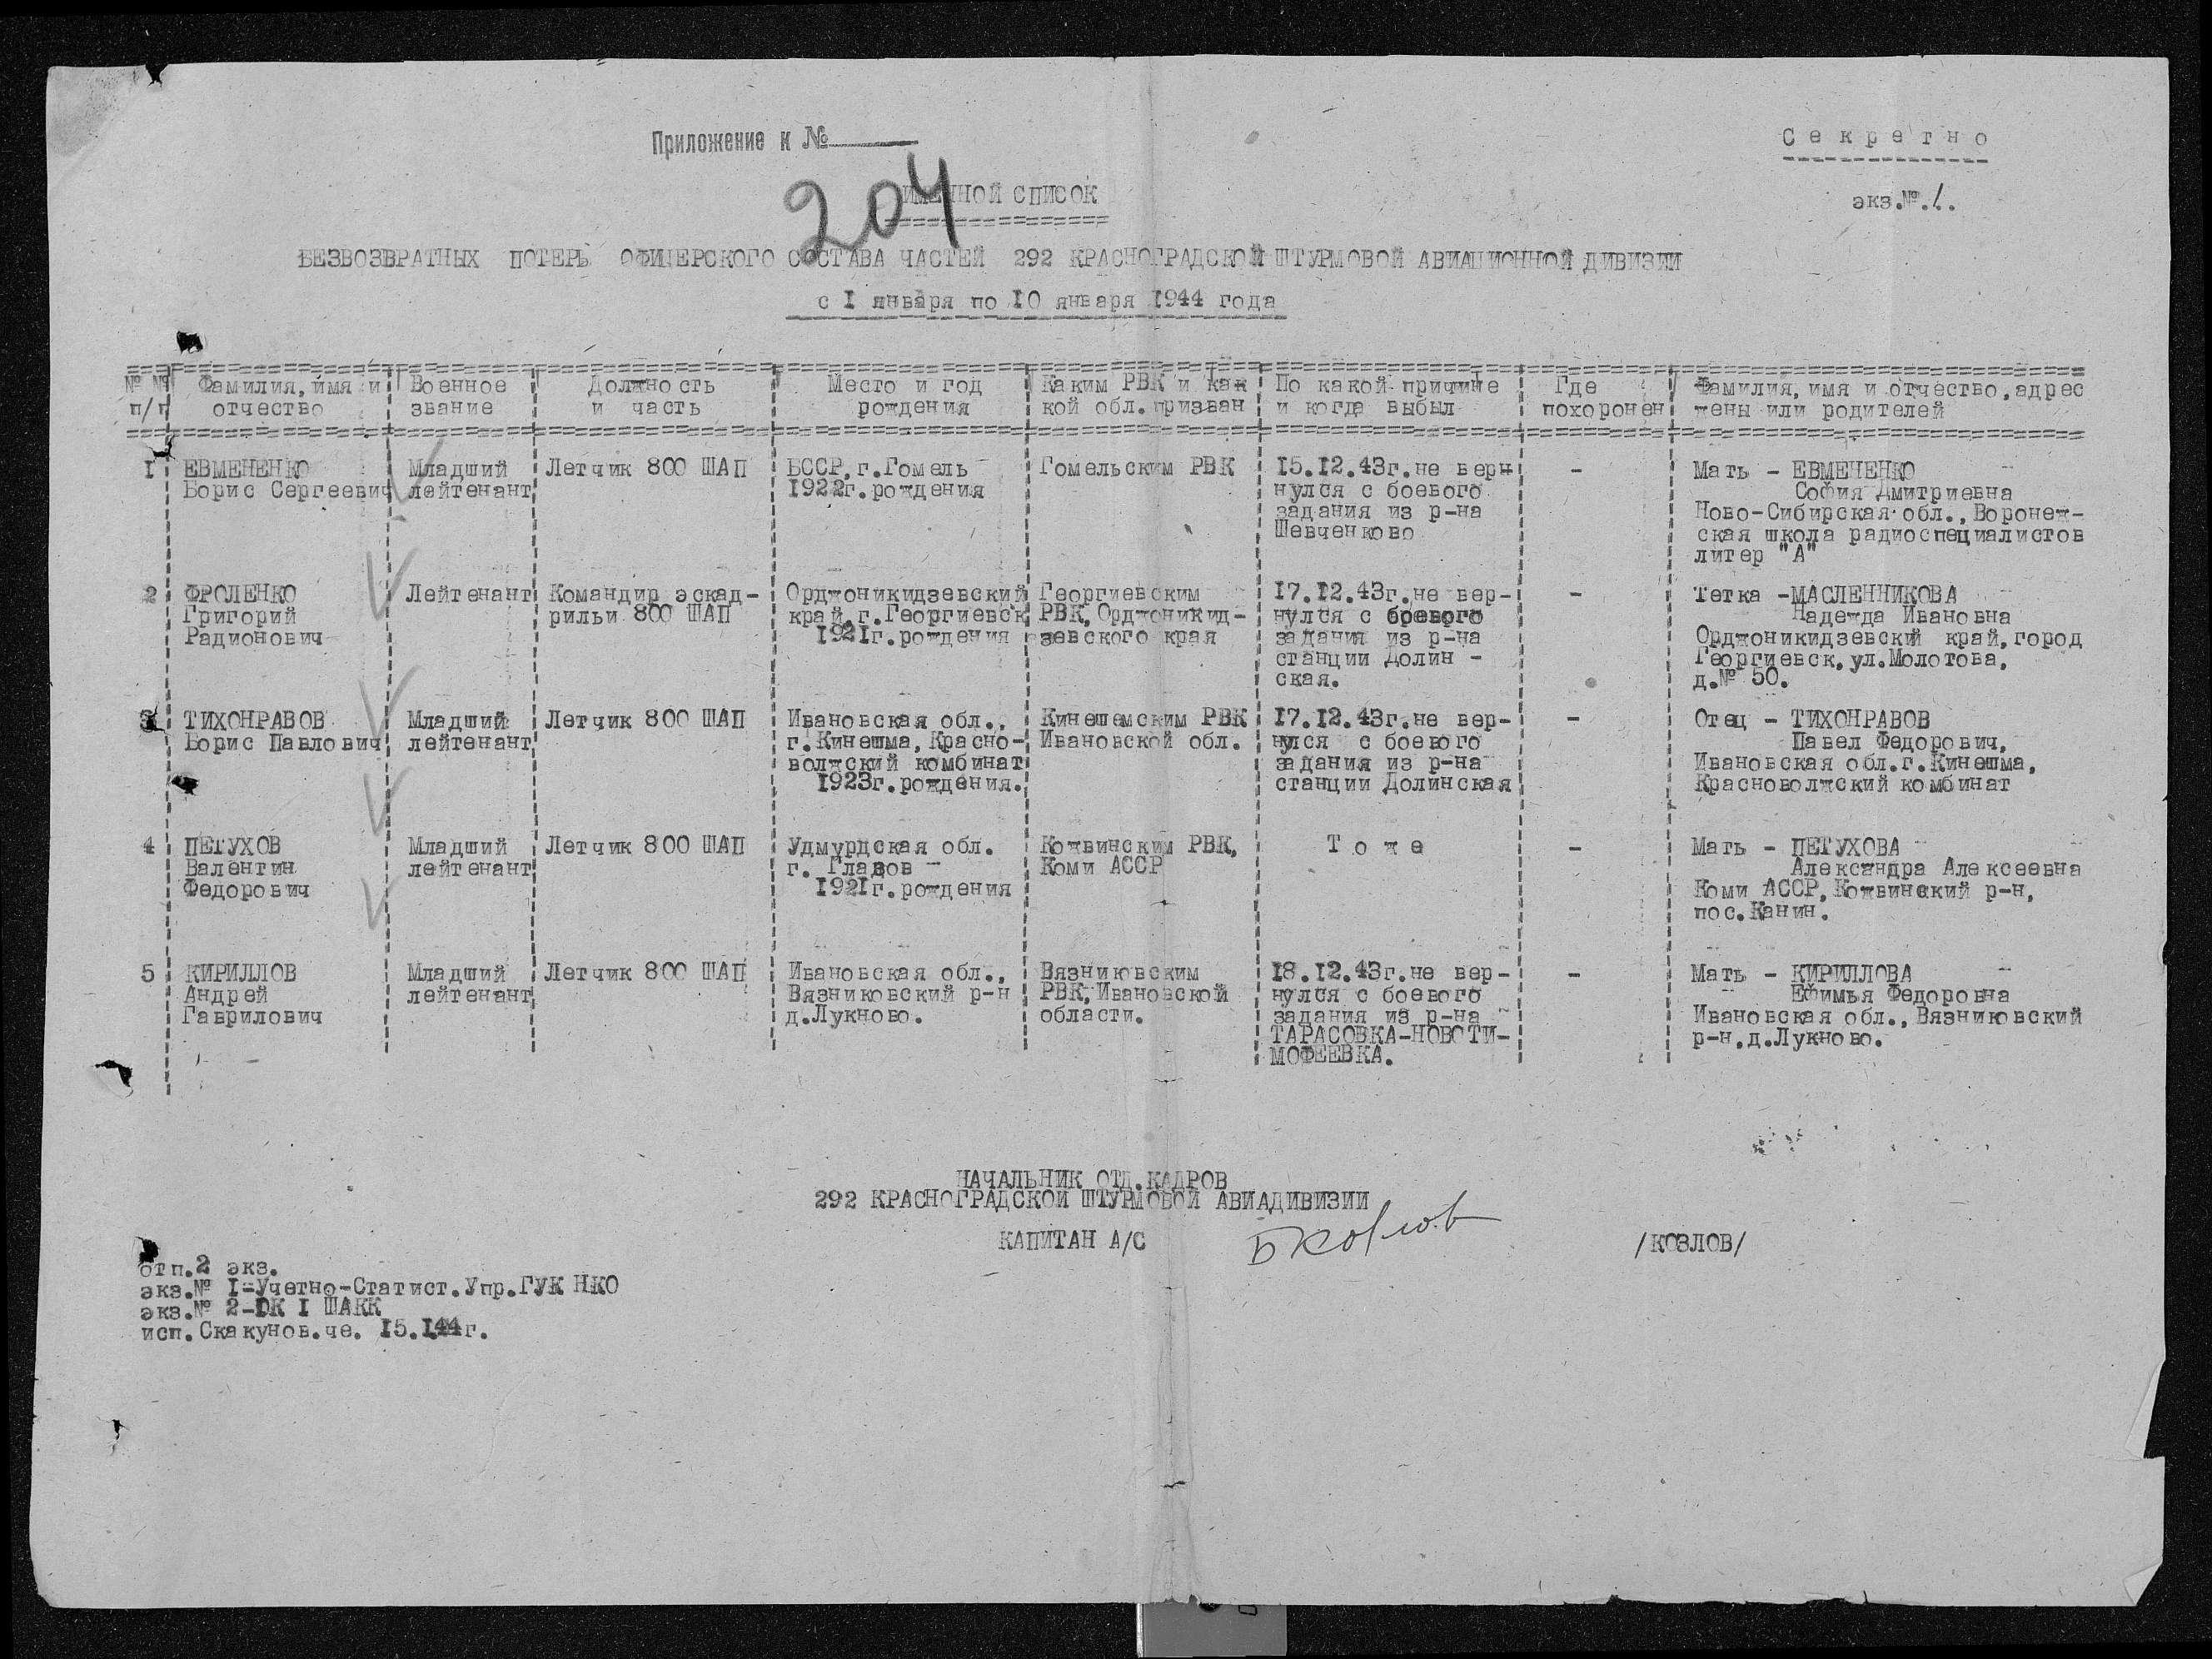 Приложение к №
Секретно
204
ИМЕННОЙ СПИСОК
экз.№.1.
БЕЗВОЗВРАТНЫХ ПОТЕРЬ ОФИЦЕРСКОГО СОСТАВА ЧАСТЕЙ 292 КРАСНОГРАДСКОЙ ШТУРМОВОЙ АВИАЦИОННОЙ ДИВИЗИИ
с I января по IO января 1944 года
№ №
п/п
Фамилия, имя и
отчество
Военное
звание
Должность
и часть
Место и год
рождения
Каким РВК и как
кой обл. призван
По какой причине
и когда выбыл
Где
похоронен
Фамилия, имя и отчество, адрес
жены или родителей
I
ЕВМЕНЕНКО
Борис Сергеевич
Младший
лейтенант
Летчик 800 ШАП
БССР, г.Гомель
1922г.рождения
Гомельским РВК
15.12.43г.не верн
нулся с боевого
задания из р-на
Шевченково
-
Мать - ЕВМЕНЕНКО
София Дмитриевна
Ново-Сибирская обл., Воронеж-
ская школа радиоспециалистов
литер "А"
2
ФРОЛЕНКО
Григорий
Радионович
Лейтенант
Командир эскад-
рильи 800 ШАП
Орджоникидзевский
край, г.Георгиевск
1921г.рождения
Георгиевским
РВК, Орджоникид-
зевского края
17.12.43г.не вер-
нулся с боевого
задания из р-на
станции Долин -
ская.
-
Тетка -МАСЛЕННИКОВА
Надежда Ивановна
Орджоникидзевский край, город
Георгиевск, ул.Молотова,
д.№ 50.
3
ТИХОНРАВОВ
Борис Павлович
Младший
лейтенант
Летчик 800 ШАП
Ивановская обл.,
г.Кинешма, Красно-
волжский комбинат
1923г.рождения.
Кинешемским РВК
Ивановской обл.
17.12.43г.не вер-
нулся с боевого
задания из р-на
станции Долинская
-
Отец - ТИХОНРАВОВ
Павел Федорович,
Ивановская обл.г.Кинешма,
Красноволжский комбинат
4
ПЕТУХОВ
Валентин
Федорович
Младший
лейтенант
Летчик 800 ШАП
Удмурдская обл.
г. Глазов -
1921г.рождения
Кожвинским РВК,
Коми АССР
Т о ж е
-
Мать - ПЕТУХОВА
Александра Алексеевна
Коми АССР, Кожвинский р-н,
пос.Канин.
5
КИРИЛЛОВ
Андрей
Гаврилович
Младший
лейтенант
Летчик 800 ШАП
Ивановская обл.,
Вязниковский р-н
д.Лукново.
Вязниковским
РВК, Ивановской
области.
18.12.43г.не вер-
нулся с боевого
задания из р-на
ТАРАСОВКА-НОВОТИ-
МОФЕЕВКА.
-
Мать - КИРИЛЛОВА
Ефимья Федоровна
Ивановская обл., Вязниковский
р-н, д.Лукново.
НАЧАЛЬНИК ОТД.КАДРОВ
292 КРАСНОГРАДСКОЙ ШТУРМОВОЙ АВИАДИВИЗИИ
КАПИТАН А/С
БКозлов
/КОЗЛОВ/
отп.2 экз.
экз.№ I-Учетно-Статист.Упр.ГУК НКО
экз.№ 2-ОК I ШАКК
исп.Скакунов.че. 15.1.44г.